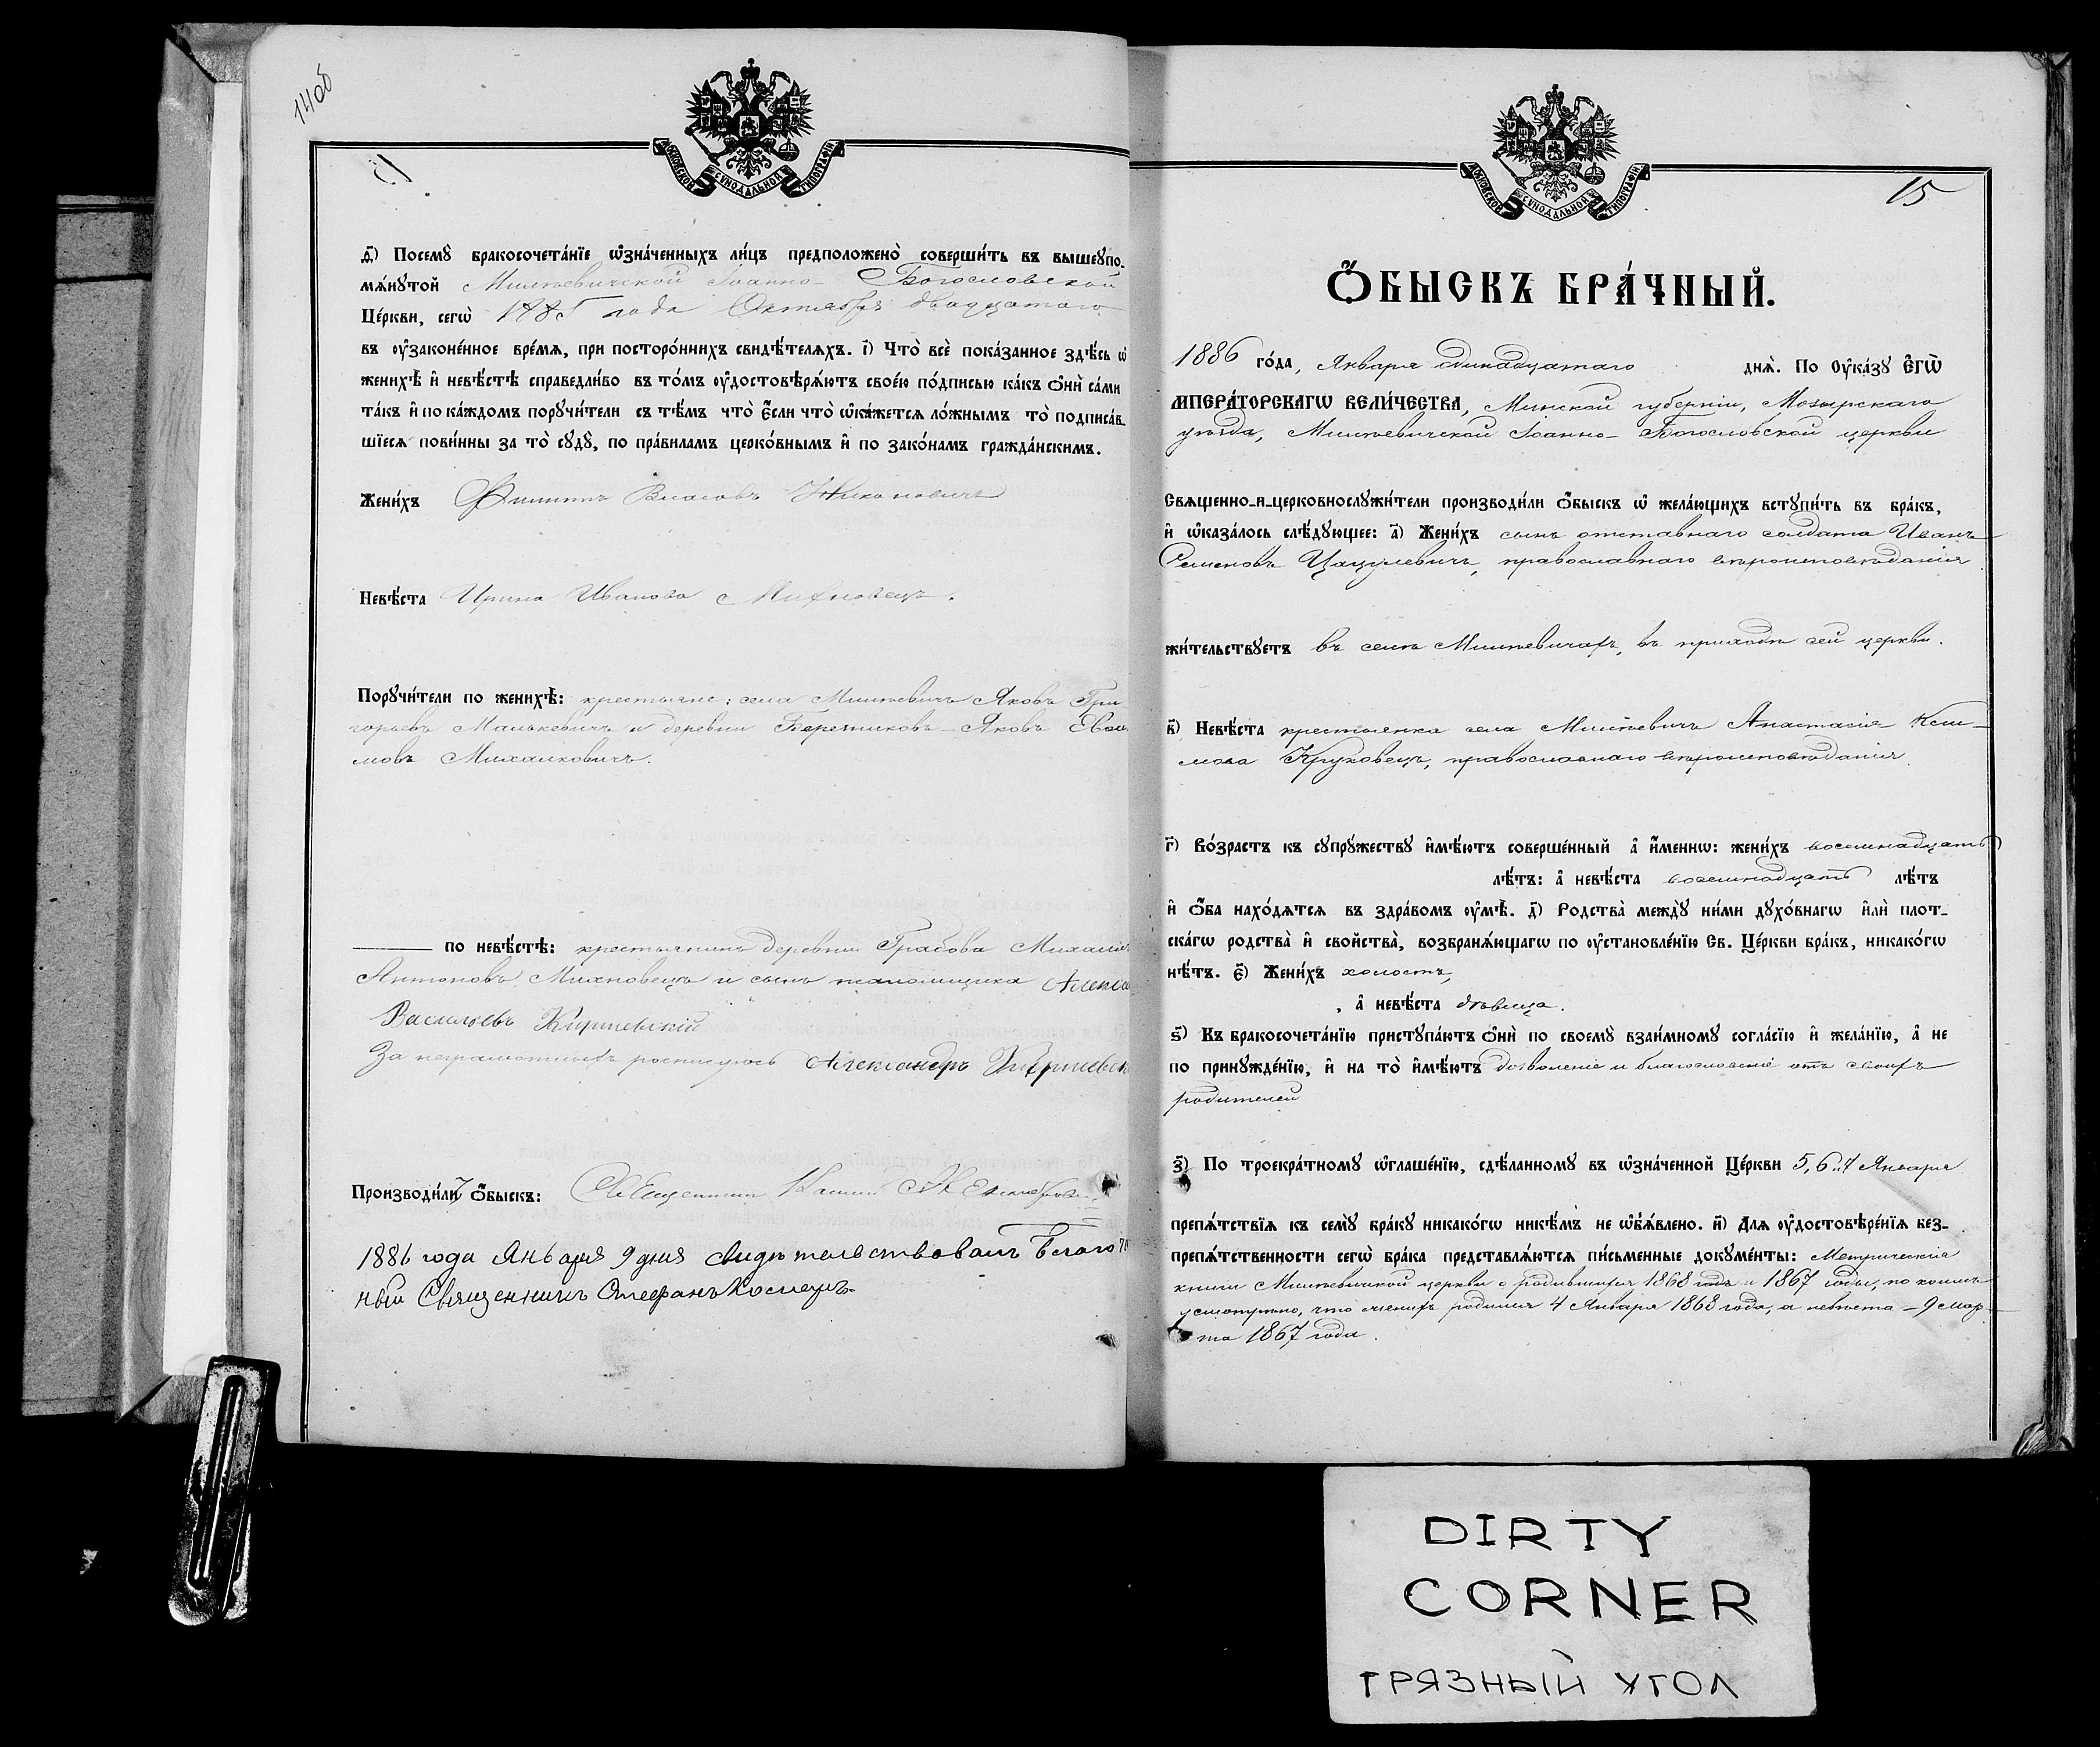 14об
МОСКОВСКОЙ СУНОДАЛЬНОЙ ТИПОГРАФІИ
д҃і) Посемꙋ̀ бракосочета́нїе ѡ҆зна́ченныхъ ли́цъ предположено̀ соверши́ть въ вышеꙋпо-
мѧ́нꙋтой Милевичской Іоанно- Богословской
Це́ркви, сегѡ̀ 1885 года Октября двадцатаго
въ ᲂу҆законе́нное вре́мѧ, при посторо́ннихъ свидѣ́телѧхъ. і҃) Что̀ всѐ пока́занное здѣ́сь ѡ҆
женихѣ̀ и҆ невѣ́стѣ справедли́во въ то́мъ ᲂу҆достовѣрѧ́ютъ свое́ю по́дписью ка́къ ѻ҆нѝ са́ми
та́къ и҆ по ка́ждомъ порꙋчи́тели съ тѣ́мъ что̀ є҆́сли что̀ ѡ҆ка́жетсѧ ло́жнымъ то̀ подписа́в-
шїесѧ пови́нны за то̀ сꙋдꙋ̀, по пра́виламъ церко́внымъ и҆ по зако́намъ гражда́нскимъ.
Жени́хъ Филиппъ Власовъ
Невѣ́ста Ирина Иванова Михновецъ.
Порꙋчи́тели по женихѣ̀: крестьяне: села Милевичъ Яковъ Гри
горьевъ Манькевичъ и деревни Яковъ
мовъ Михалковичъ.
по невѣ́стѣ: крестьянинъ деревни Грабова Михаилъ
Антоновъ Михновецъ и сынъ
Васильевъ
За неграмотныхъ росписуюсь Александръ
Производи́ли ѻ҆́быскъ: Священникъ
1886 года Января 9 дня свидѣтельствовалъ
ный Священникъ Стефанъ
МОСКОВСКОЙ СУНОДАЛЬНОЙ ТИПОГРАФІИ
15
Ѻ҆́БЫСКЪ БРА́ЧНЫЙ.
1886 го́да, Января одинадцатаго днѧ̀. По Оу҆ка́зꙋ Є҆гѡ̀
ИМПЕРА́ТОРСКАГѠ ВЕЛИ́ЧЕСТВА, Минской губерніи, Мозырскаго
уѣзда, Милевичской Іоанно- Богословской церкви
Свѧщенно-и-церковнослꙋжи́тели производи́ли ѻ҆́быскъ ѡ҆ жела́ющихъ встꙋпи́ть въ бра́къ,
и҆ ѡ҆каза́лось слѣ́дꙋющее: а҃) Жени́хъ сынъ отставнаго солдата Иванъ
Семеновъ Цацулевичъ, православнаго вѣроисповѣданія
жи́тельствꙋетъ въ селѣ Милевичахъ, въ приходѣ сей церкви.
в҃) Невѣ́ста крестьянка села Милевичъ Анастасія Кли-
мова Круковецъ, православнаго вѣроисповѣданія.
г҃) Во́зрастъ къ сꙋпрꙋ́жествꙋ и҆мѣ́ютъ соверше́нный а҆̀ и҆́менно: жени́хъ восемнадцать
лѣ́тъ: а҆̀ невѣ́ста восемнадцать лѣ́тъ
и҆ ѻ҆́ба нахо́дѧтсѧ въ здра́вомъ ᲂу҆мѣ̀. д҃) Родства̀ междꙋ̀ ни́ми дꙋхо́внагѡ и҆лѝ плот-
ска́гѡ родства̀ и҆ сво́йства̀, возбранѧ́ющагѡ по ᲂу҆становле́нїю Св. Це́ркви бра́къ, никако́гѡ
нѣ́тъ. є҃) Жени́хъ холостъ,
, а҆̀ невѣ́ста дѣвица.
ѕ҃) Къ бракосочета́нїю пристꙋпа́ютъ ѻ҆нѝ по своемꙋ̀ взаи́мномꙋ согла́сїю и҆ жела́нїю, а҆̀ не
по принꙋжде́нїю, и҆ на то̀ и҆мѣ́ютъ дозволеніе и благословеніе отъ своихъ
родителей
з҃) По троекра́тномꙋ ѡ҆глаше́нїю, сдѣ́ланномꙋ въ ѡ҆зна́ченной Це́ркви 5, 6 и 7 Января
препѧ́тствїѧ къ семꙋ̀ бра́кꙋ никако́гѡ никѣ́мъ не ѡ҆б̾ѧ́влено. и҃) Длѧ ᲂу҆достовѣре́нїѧ без-
препѧ́тственности сегѡ̀ бра́ка представлѧ́ютсѧ пи́сьменные докꙋме́нты: Метрическія
книги Милевичской церкви о родившихся 1868 года и 1867 годы, по коимъ
усмотрѣно, что женихъ родился 4 Января 1868 года, а невѣста – 9 мар-
та 1867 года.
DIRTY
CORNER
ГРЯЗНЫЙ УГОЛ